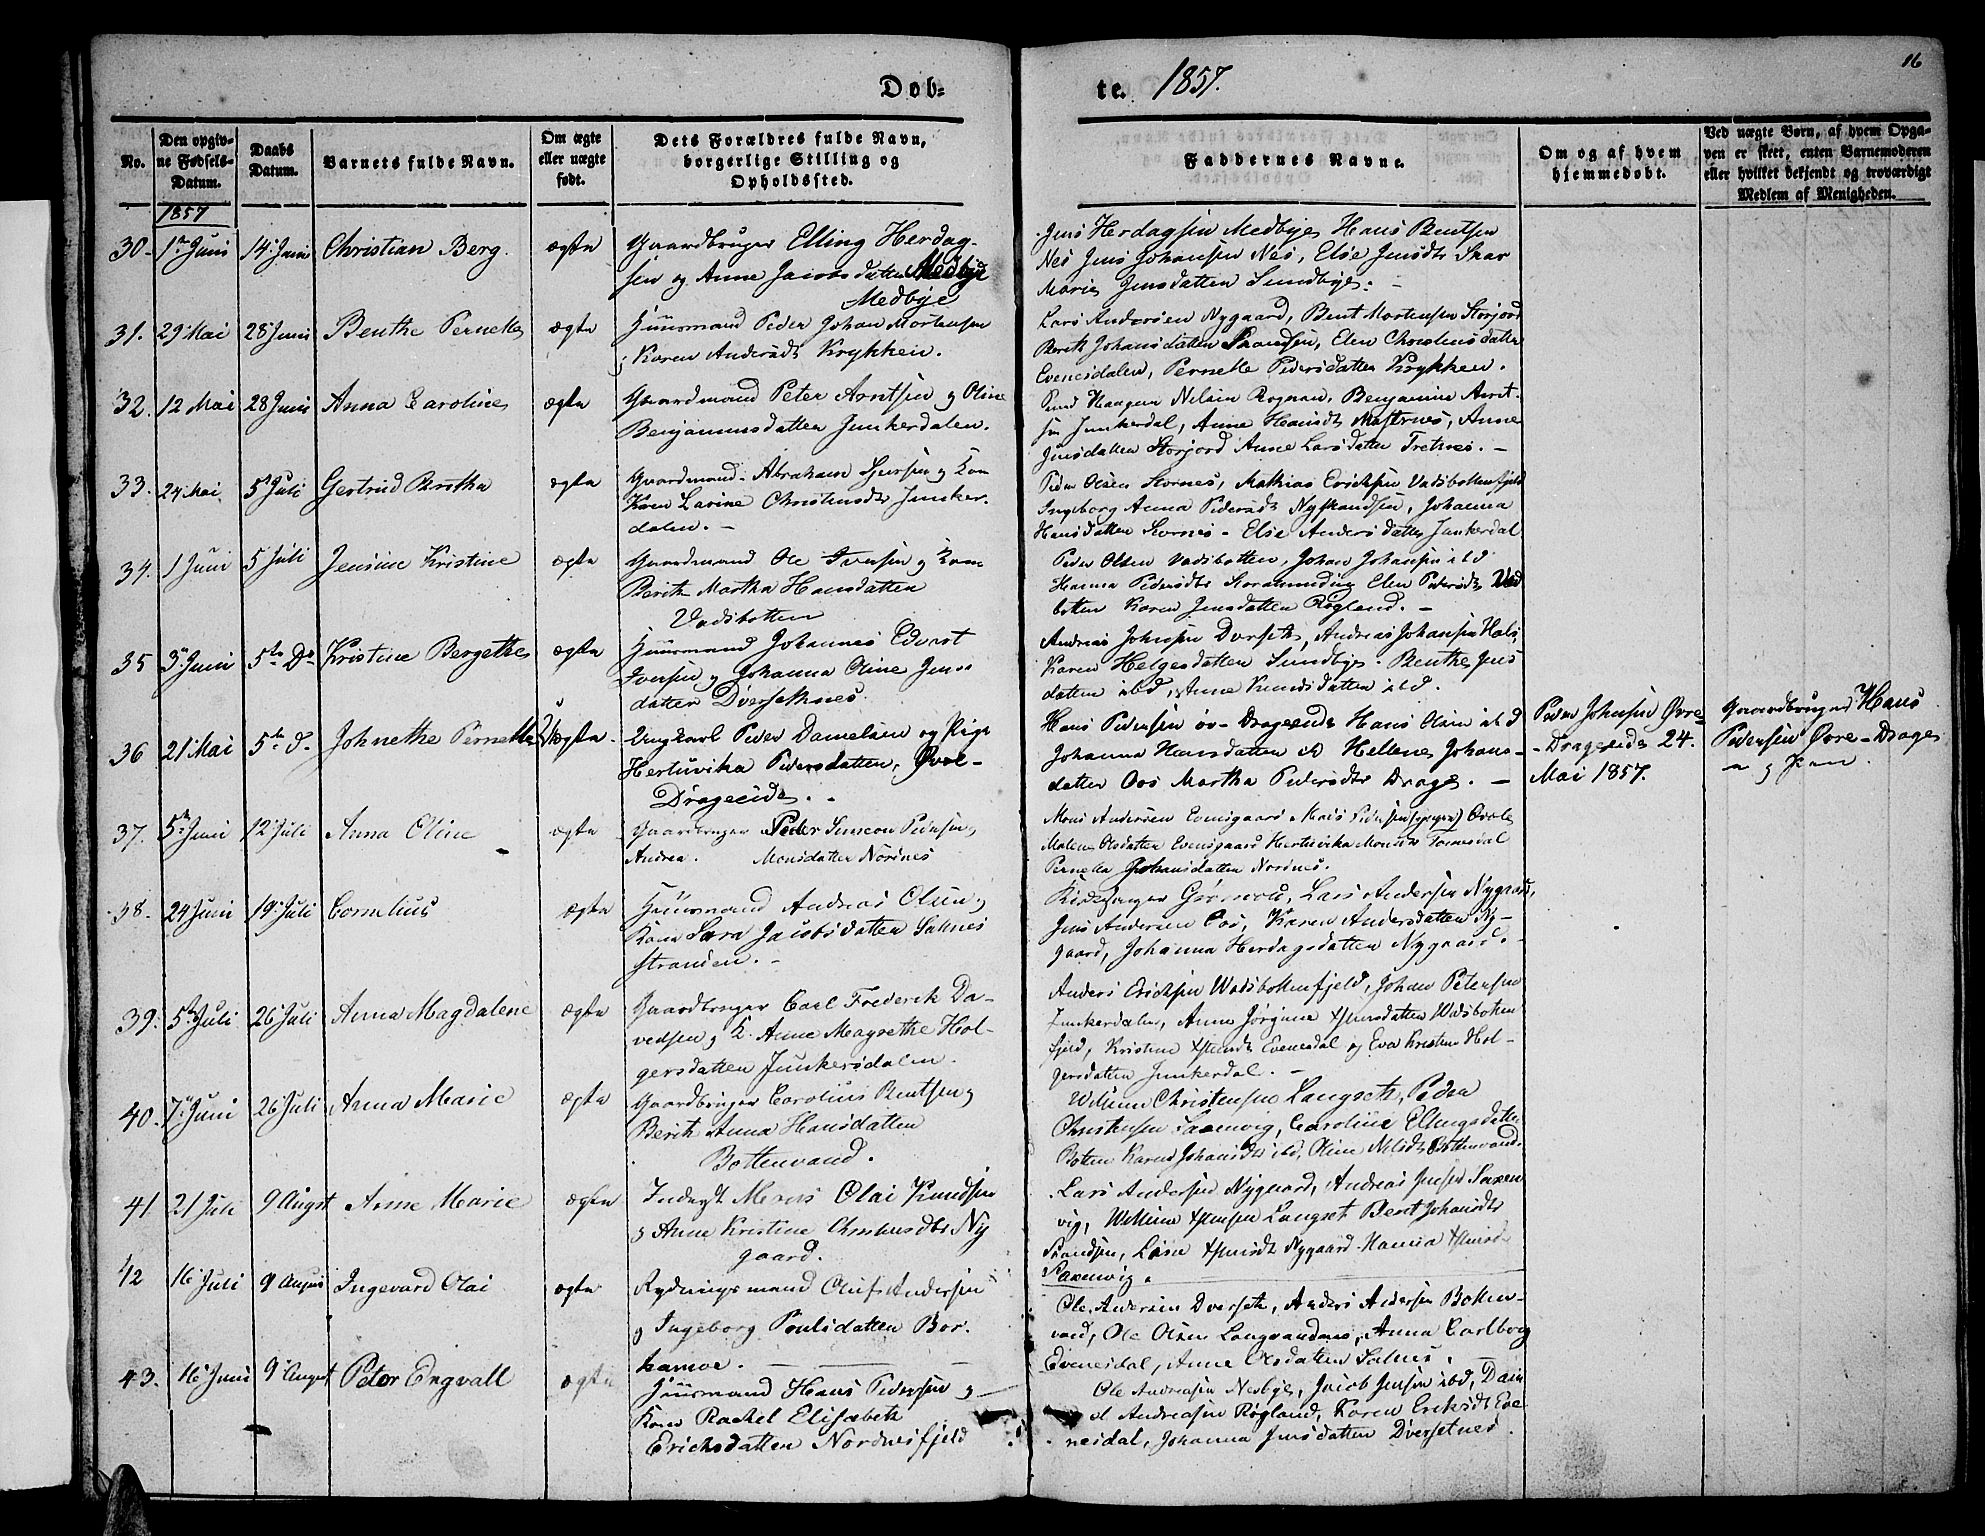 16
Døb=
te. 1857.
No.
Den opgiv-
ne Fødsels-
Datum.
Daabs
Datum.
Barnets fulde Navn.
Om ægte
eller uægte
født.
Dets Forældres fulde Navn,
borgerlige Stilling og
Opholdssted.
Faddernes Navne.
Om og af hvem
hjemmedøbt.
Ved uægte Børn, af hvem Opga-
ven er skeet, enten Barnemoderen
eller hvilket bekjendt og troværdigt
Medlem af Menigheden.
1857
30. 1ste Juni 14 Juni Christian Berg. ægte Gaardbruger Elling Herdag-
sen og Anne Jacobsdatter Medbye
Medbye
Jens Herdagsen Medbye Hans Bentsen
Nes Jens Johansen Nes, Else Jensdtr Skar
Marie Jensdatter Sundbye.
31. 29 Mai 28 Juni Benthe Pernelle ægte Huusmand Peder Johan Mortensen
og Karen Andersdtr Krykken.
Lars Andersen Nygaard, Bent Mortensen Storjord
Berith Johansdatter Elen Christensdatter
Evenesdalen, Pernelle Pedersdatter Krykken.
32. 12 Mai 28 Juni Anna Caroline ægte Gaardmand Peter Arntsen og Oline
Benjaminsdatter Junkerdalen.
Haagen Nilsen Rognan, Benjamin Arnt-
sen Junkerdal, Anne Hansdtr Anne
Jensdatter Storjord Anne Larsdatter Tretnes.
33. 24 Mai 5 Juli Gertrud Britha ægte Gaardmand Abraham og Kone
Karen Lavine Christensdtr Junker-
dalen.
Peder Olsen Stornes, Mathias Erichsen Vadsbottenfjeld
Ingeborg Anna Pedersdtr Johanna
Hansdatter Stornes - Else Andersdatter Junkerdal
34. 1 Juni 5 Juli Jensine Kristine ægte Gaardmand Ole Iversen og Kone
Berith Martha Hansdatter
Vadsbotten
Peder Olsen Vadsbotten, Johan Johansen ibd
Hanna Pedersdtr Elen Pedersdtr Vads
botten Karen Jensdatter Røgland.
35 3 Juni 5te Do Kristine Bergethe ægte Huusmand Johannes Edvart
Iversen og Johanna Oline Jens
datter Dversetnes.
Andreas Johnsen Dverseth, Andreas Johansen
Karen Helgesdatter Sundbye. Benthe Jens
datter ibd, Anne Knudsdatter ibd.
36 21 Mai 5te d. Johnethe Pernelle Uægte. Ungkarl Peder Danielsen og Pige
Hertuvika Pedersdatter, Øvre-
Drageeide.
Hans Pedersen øv-Drageeide Hans Olsen ibd
Johanna Hansdatter ib Hellene Johans-
datter Oos Martha Pedersdtr Drage.
Peder Johnsen Øvre-
Drageeide 24.
Mai 1857.
Gaardbruger Hans
Pedersen Øvre-Drage
37. 5te Juni 12 Juli Anna Oline ægte Gaardbruger Peder Simeon Pedersen,
Andrea. Monsdatter Nordnes
Mons Andersen Evensgaard Mads Pedersen
Malene Olsdatter Evensgaard Hertuvika Monsdtr
Pernelle Johansdatter Nordnes.
38. 24 Juni 19 Juli Cornelius ægte Huusmand Andreas Olsen og
Kone Sara Jacobsdatter Saltnes
stranden.
Kirkesanger Lars Andersen Nygaard,
Jens Andersen Oos, Karen Andersdatter Ny-
gaard, Johanna Herdagsdatter Nygaard.
39. 5te Juli 26 Juli Anna Magdalene ægte Gaardbruger Carl Frederik Da-
vedsen og K. Anne Magrethe Hol-
gersdatter Junkersdalen.
Anders Erichsen Wadsbottenfjeld, Johan Petersen
Junkerdalen, Anne Jørgine Wadsbotten
fjeld, Kristine Evenesdal og Eva Kristine Hol-
gersdatter Junkerdal.
40. 7 Juni 26 Juli Anna Marie ægte Gaardbruger Carolius Bentsen og
Berith Anna Hansdatter
Bottenvand.
Wilhelm Christensen Langseth, Peder
Christensen Saxenvig, Caroline Ellingsdatter
Botten Karen Johansdtr ibd, Oline Nilsdtr Bottenvand
41 21 Juli 9 Augst Anne Marie ægte Inderst Mons Olai Knudsen
og Anne Kristine Christensdtr Ny
gaard.
Lars Andersen Nygaard, Andreas Jensen Saxen
vig, Wilhelm Langset Berit Johansdtr
Nygaard Hanna
Saxenvig.
42 16 Juli 9 August Ingevard Olai ægte Rydningsmand Oluf Andersen
og Ingeborg Poulsdatter Bor-
kamoe.
Ole Andersen Dverseth, Anders Andersen Botten-
vand, Ole Olsen Langvandnes, Anna Carlborg
Evenesdal, Anne Olsdatter Saltnes.
43. 16 Juni 9 August Peter Engvall ægte Huusmand Hans Pedersen og
Kone Rachel Elisabeth
Erichsdatter Nordnesfjeld
Ole Andreasen Nesbye, Jacob Jensen ibd, Dani
el Andreasen Røgland, Karen Eriksdtr Eve
nesdal, Johanna Jensdatter Dversetnes